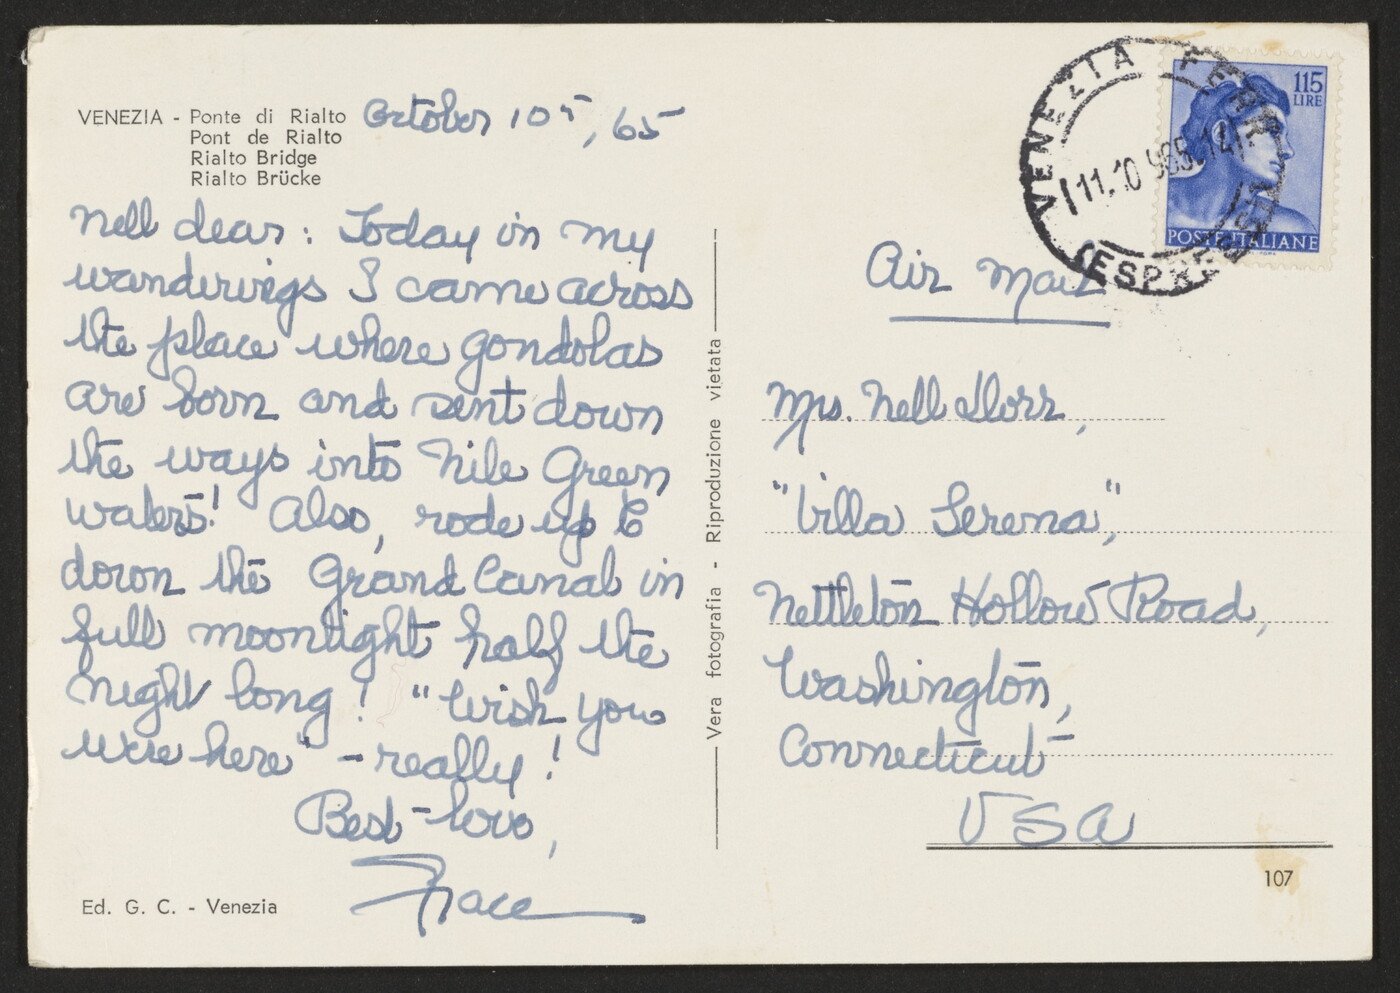 VENEZIA - Ponte di Rialto
Pont de Rialto
Rialto Bridge
Rialto Brücke
October 10, 65
Nell dear: Today in my
wanderings I came across
the place where gondolas
are born and sent down
the ways into Nile Green
waters! Also, rode up &
down the Grand Canal in
full moonlight half the
night long! "Wish you
were here" - really!
Best love,
Grace
Ed. G. C. - Venezia
Vera fotografia - Riproduzione vietata
VENEZIA FERROVIA
11.10.965.14
(ESPR
115
LIRE
POSTE ITALIANE
Air Mail
Mrs. Nell Dorr,
"Villa Serena",
Nettleton Hollow Road,
Washington,
Connecticut
USA
107